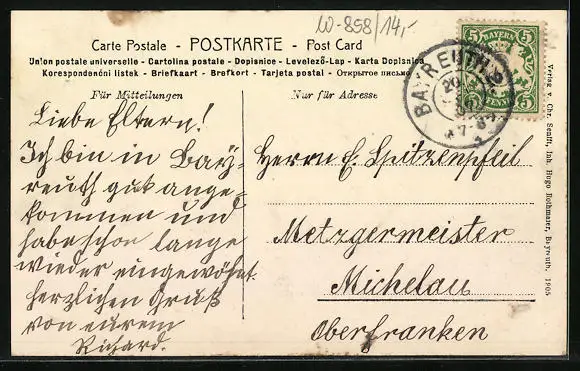 W-858/14,-
Carte Postale - POSTKARTE - Post Card
Union postale universelle - Cartolina postale - Dopisnice - Levelező-Lap - Karta Dopisnica
Korespondenční lístek - Briefkaart - Brefkort - Tarjeta postal - Открытое письмо
Für Mitteilungen
Nur für Adresse
5 BAYERN 5
5 PFENNIG 5
BAYREUTH 2
20
7-8
Liebe Eltern!
Ich bin in Bay-
reuth gut ange-
kommen und
habe schon lange
wieder eingewöhnt.
Herzlichen Gruß
von eurem
Richard.
Herrn E. Spitzenpfeil
Metzgermeister
Michelau
Oberfranken
Verlag v. Chr. Senfft, Inh. Hugo Rothmaier, Bayreuth, 1905